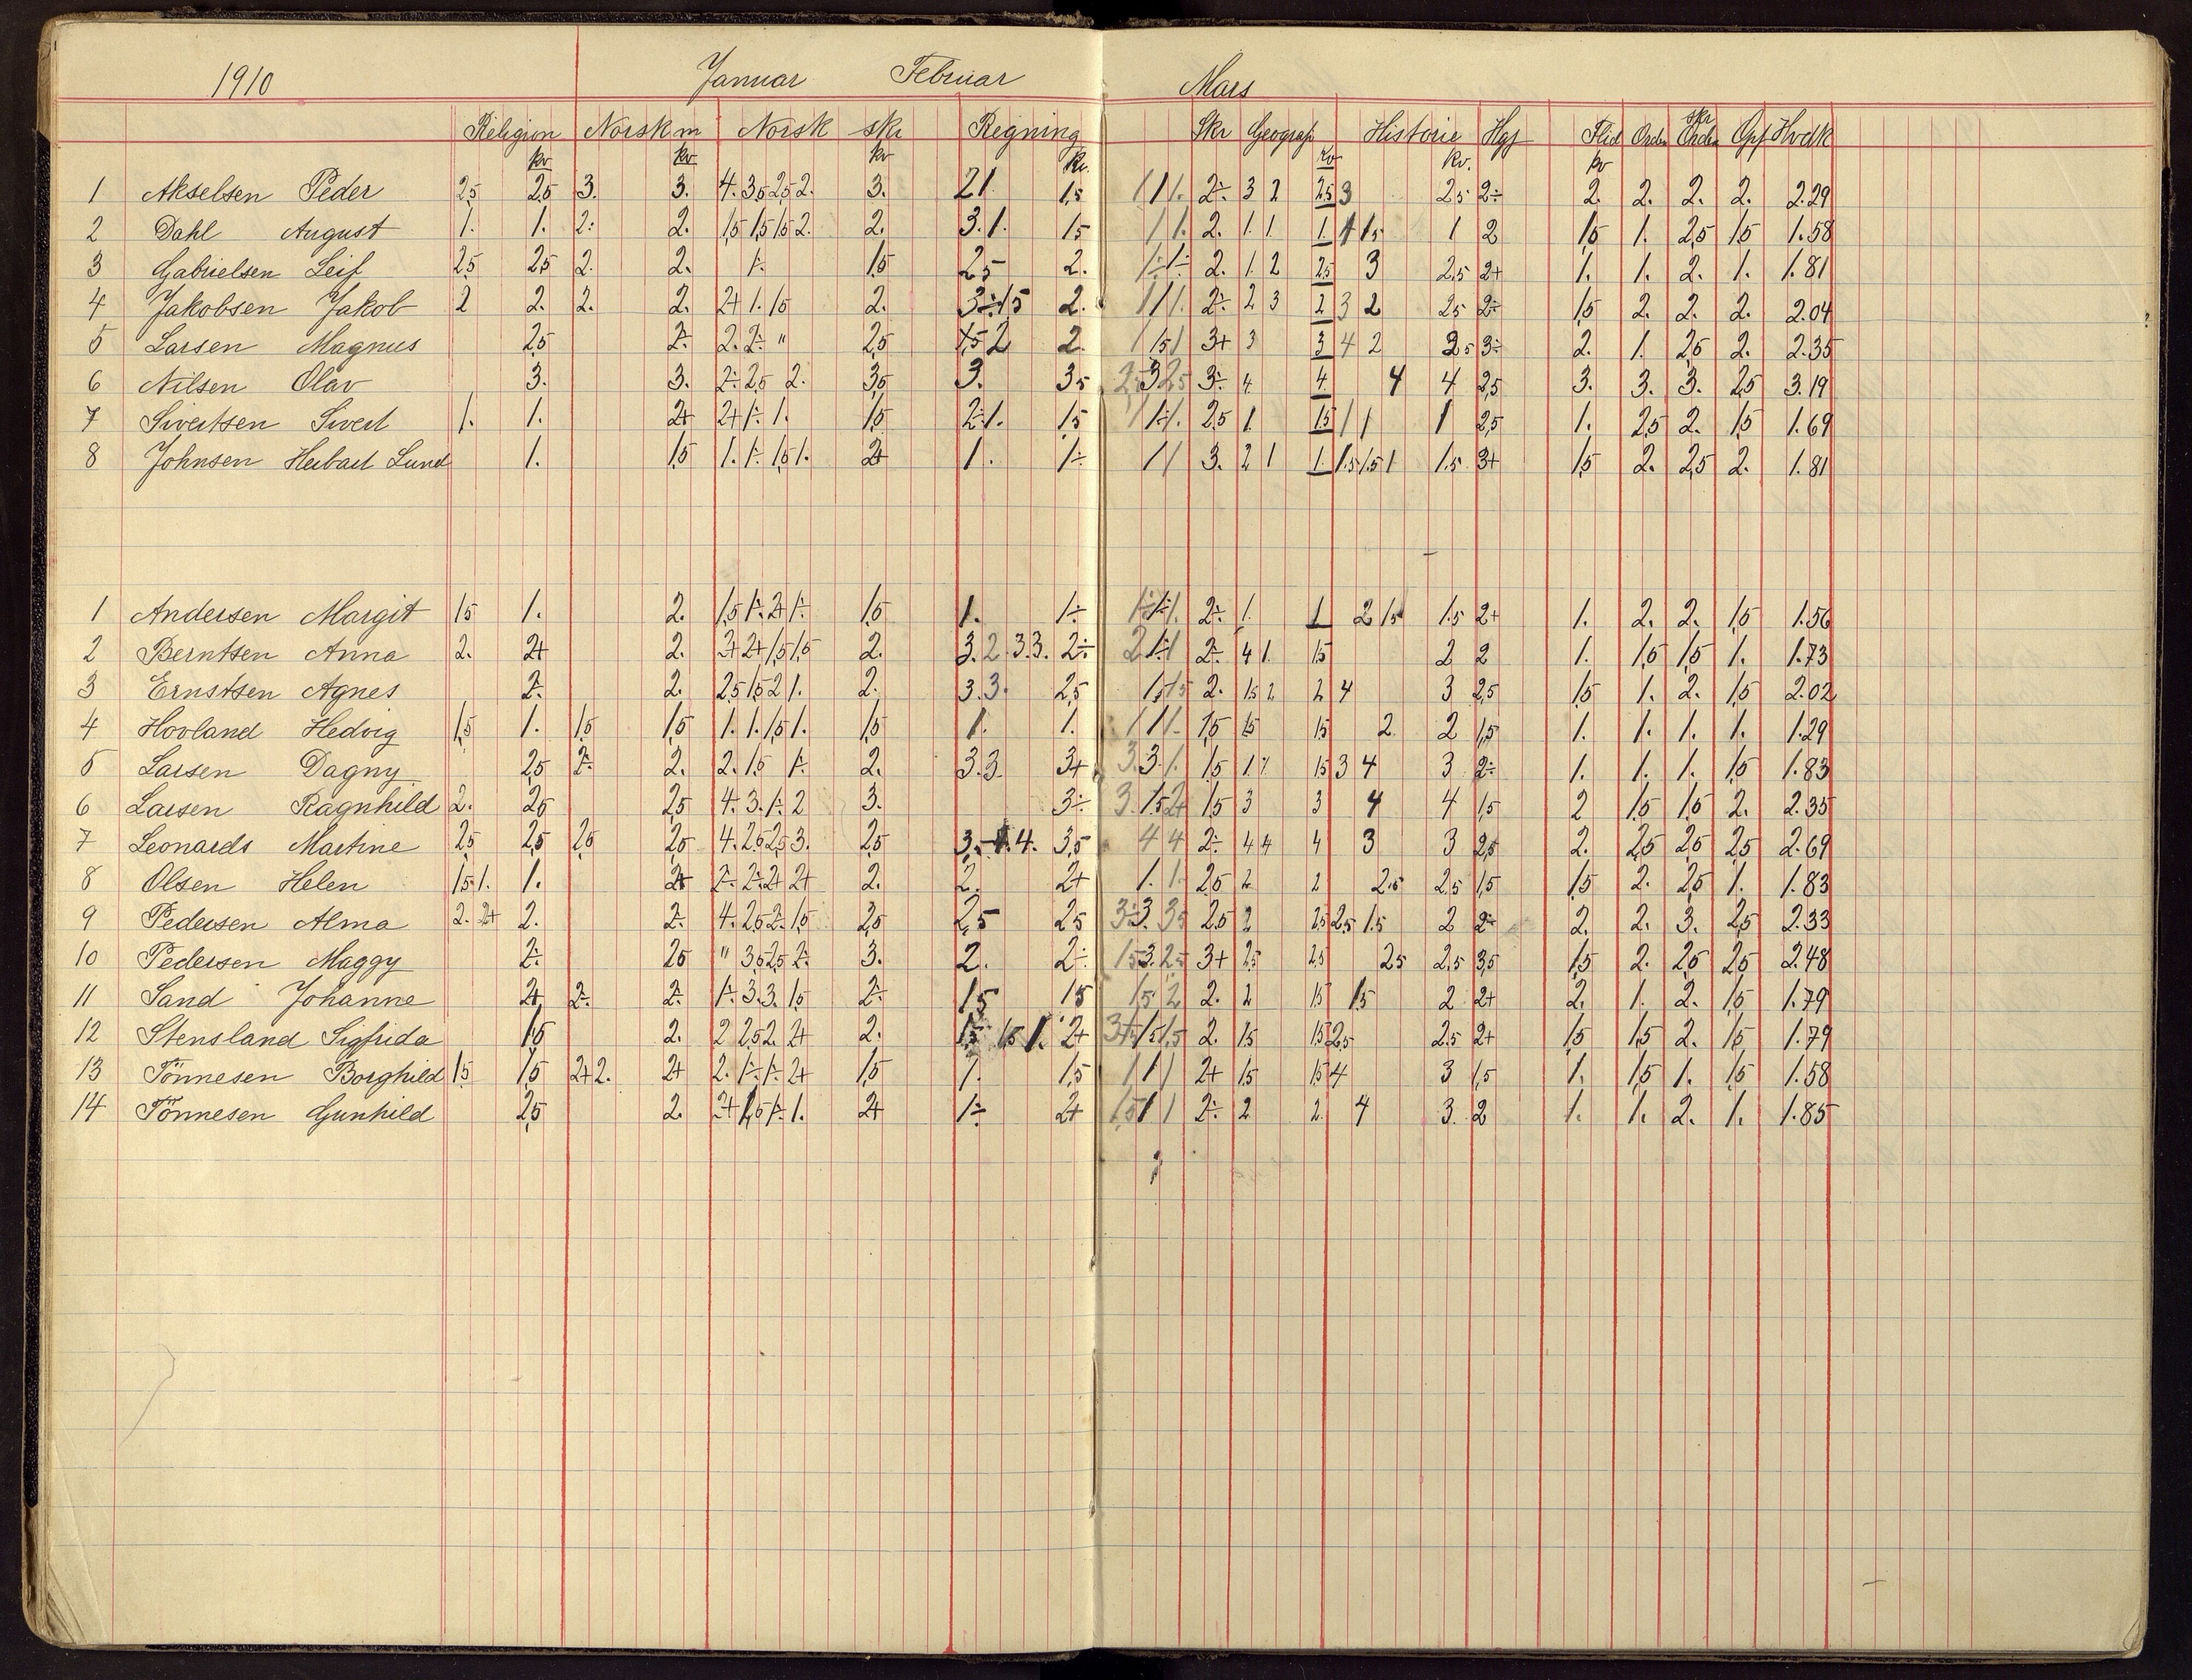 1910 Januar Februar Mars
Religion Norsk m Norsk skr Regning Skr Geograf Historie Hgj Flid Orden skr Orden Opf Hvdk
kv kv kv kv. kv kv. kv
1 Akselsen Peder 2,5 2,5 3. 3. 4. 3,5 2,5 2. 3. 2 1. 1,5 1 1 1. 2÷ 3 2 2,5 3 2,5 2÷ 2. 2. 2. 2. 2.29
2 Dahl August 1. 1. 2. 2. 1,5 1,5 1,5 2. 2. 3. 1. 1,5 1 1. 2. 1. 1. 1. 1 1,5 1 2 1,5 1. 2,5 1,5 1.58
3 Gabrielsen Leif 2,5 2,5 2. 2. 1÷ 1,5 2,5 2. 1÷ 1÷ 2. 1. 2 2,5 3 2,5 2+ 1. 1. 2. 1. 1.81
4 Jakobsen Jakob 2 2. 2. 2. 2+ 1. 1,5 2. 3÷ 1,5 2. 1 1 1. 2÷ 2 3 2 3 2 2,5 2÷ 1,5 2. 2. 2. 2.04
5 Larsen Magnus 2,5 2÷ 2. 2÷ " 2,5 1,5 2 2. 1 1,5 1 3+ 3 3 4 2 2,5 3÷ 2. 1. 2,5 2. 2.35
6 Nilsen Olav 3. 3. 2÷ 2,5 2. 3,5 3. 3,5 2÷ 3 2,5 3÷ 4 4 4 4 2,5 3. 3. 3. 2,5 3.19
7 Sivertsen Sivert 1. 1. 2+ 2+ 1÷ 1. 1,5 2÷ 1. 1,5 1 1÷ 1. 2,5 1. 1,5 1 1 1 2,5 1. 2,5 2. 1,5 1.69
8 Johnsen Herbart Lund 1. 1,5 1. 1÷ 1,5 1. 2+ 1. 1÷ 1 1 3. 2 1 1 1,5 1,5 1 1,5 3+ 1,5 2. 2,5 2. 1.81
1 Andersen Margit 1,5 1. 2. 1,5 1÷ 2+ 1÷ 1,5 1. 1÷ 1÷ 1÷ 1. 2÷ 1. 1 2 1,5 1.5 2+ 1. 2. 2. 1,5 1.56
2 Berntsen Anna 2. 2+ 2. 3+ 2+ 1,5 1,5 2. 3. 2 3. 3. 2÷ 2 1÷ 1 2÷ 4 1. 1,5 2 2 1. 1,5 1,5 1. 1.73
3 Ernstsen Agnes 2÷ 2. 2,5 1,5 2 1. 2. 3. 3. 2,5 1,5 1,5 2. 1,5 2 2 4 3 2,5 1,5 1. 2. 1,5 2.02
4 Hovland Hedvig 1,5 1. 1,5 1,5 1. 1. 1,5 1. 1,5 1. 1. 1 1 1. 1,5 1,5 1,5 2 2 1,5 1. 1. 1. 1. 1.29
5 Larsen Dagny 2,5 2÷ 2. 2. 1,5 1÷ 2. 3. 3. 3+ 3. 3. 1. 1,5 1. 1,5 3 4 3 2÷ 1. 1. 1. 1,5 1.83
6 Larsen Ragnhild 2. 2,5 2,5 4. 3. 1÷ 2 3. 3÷ 3. 1,5 2+ 1,5 3 3 4 4 1,5 2 1,5 1,5 2. 2.35
7 Leonards Martine 2,5 2,5 2,5 2,5 4. 2,5 2,5 3. 2,5 3. 4. 3,5 4 4 2÷ 4 4 4 3 3 2,5 2. 2,5 2,5 2,5 2.69
8 Olsen Helen 1,5 1. 1. 2+ 2÷ 2÷ 2+ 2+ 2. 2. 2+ 1. 1. 2,5 2 2 2,5 2,5 1,5 1,5 2. 2,5 1. 1.83
9 Pedersen Alma 2. 2+ 2. 2÷ 4. 2,5 2÷ 1,5 2,5 2,5 2,5 3÷ 3. 3,5 2,5 2 2,5 2,5 1.5 2 2÷ 2. 2. 3. 2,5 2.33
10 Pedersen Maggy 2÷ 2,5 " 3,5 2,5 2÷ 3. 2. 2÷ 1,5 3. 2,5 3+ 2,5 2,5 2,5 2,5 3,5 1,5 2. 2,5 2,5 2.48
11 Sand Johanne 2+ 2÷ 2÷ 1÷ 3. 3. 1,5 2÷ 1,5 1,5 1,5 2 2. 2 1,5 1,5 2 2+ 2. 1. 2. 1,5 1.79
12 Stensland Sigfrida 1,5 2. 2 2,5 2. 2+ 2. 1,5 1,5 1. 2+ 3+ 1,5 1,5 2. 1,5 1,5 2,5 2.5 2+ 1,5 1,5 2. 1,5 1.79
13 Tönnesen Borghild 1,5 1,5 2+ 2. 2+ 2. 1÷ 1÷ 2+ 1,5 1. 1,5 1 1 1 2+ 1,5 1,5 4 3 1,5 1. 1,5 1. 1,5 1.58
14 Tönnesen Gunhild 2,5 2. 3+ 1,5 1÷ 1. 2+ 1÷ 2+ 1,5 1 1 2÷ 2 2 4 3. 2 1. 1. 2. 1. 1.85